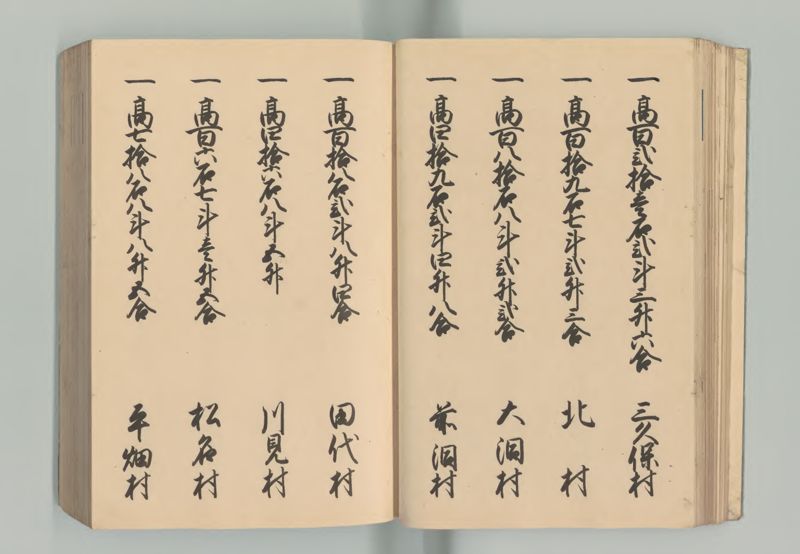 一 高百弐拾壱石弐斗三升六合 三久保村
一 高百拾九石七斗弐升三合 北村
一 高百八拾石八斗弐升弐合 大洞村
一 高四拾九石弐斗四升八合 前洞村
一 高百拾八石弐斗八升四合 田代村
一 高四拾六石八斗五升 川見村
一 高百六石七斗壱升五合 松名村
一 高七拾八石八斗八升五合 平畑村